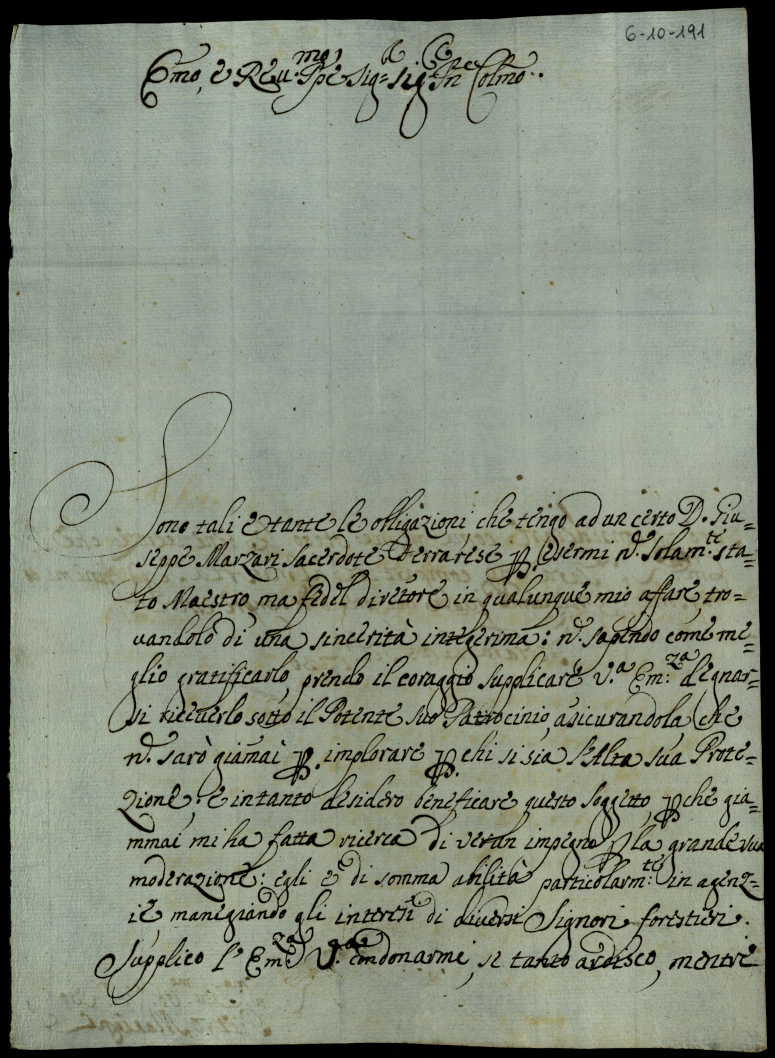 6-10-191
Emo, e Reu.mo Ppe Sig.r Sig.r Pne Colmo..
Sono tali e tante le obligazioni che tengo ad un certo D. Giu=
seppe Marzari sacerdote Ferrarese p. esermi n. solam.te sta=
to Maestro ma fidel diretore in qualunque mio affare tro=
vandolo di una sincerità integerima: n. sapendo come me=
glio gratificarlo, prendo il coraggio supplicare V.a Em.za degnar=
si riceverlo sotto il Potente suo Patrocinio, asicurandola che
n. sarò giamai p. implorare p. chi si sia l'Alta sua Prote=
zione, e intanto desidero beneficare questo soggetto, p.che gia=
mmai mi ha fatta ricerca di verun impegno p. la grande sua
moderazione: egli è di somma abilità particolarm.te in agenz=
ie manegiando gli interesi di diversi Signori forestieri.
Supplico l' Em.za V.ra condonarmi, se tanto ardisco, mentre